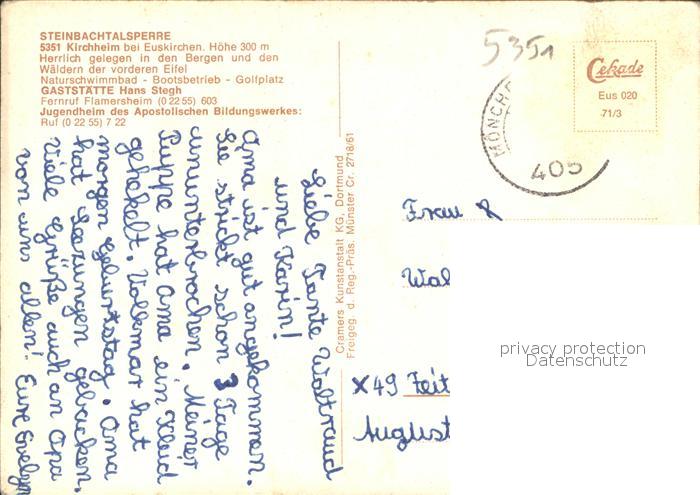 STEINBACHTALSPERRE
5351 Kirchheim bei Euskirchen. Höhe 300 m
Herrlich gelegen in den Bergen und den
Wäldern der vorderen Eifel
Naturschwimmbad - Bootsbetrieb - Golfplatz
GASTSTÄTTE Hans Stegh
Fernruf Flamersheim (0 22 55) 603
Jugendheim des Apostolischen Bildungswerkes:
Ruf (0 22 55) 7 22
Liebe Tante Waltraud
und Karin!
Oma ist gut angekommen.
Sie strickt schon 3 Tage
ununterbrochen. Meiner
Puppe hat Oma ein Kleid
gehekelt. Volkmar hat
morgen Geburtstag. Oma
hat Seezungen gebacken.
Viele Grüße auch an Opa
von uns allen! Eure Evelyn
Cramers Kunstanstalt KG, Dortmund
Freigeg. d. Reg.-Präs. Münster Cr. 2718/61
5351
Cekade
Eus 020
71/3
MÖNCHE
405
Frau
Wal
X49 Zeit
August
privacy protection
Datenschutz